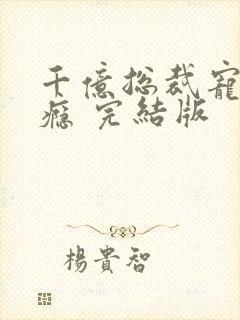 千億總裁寵
癮 完結版
楊貴智